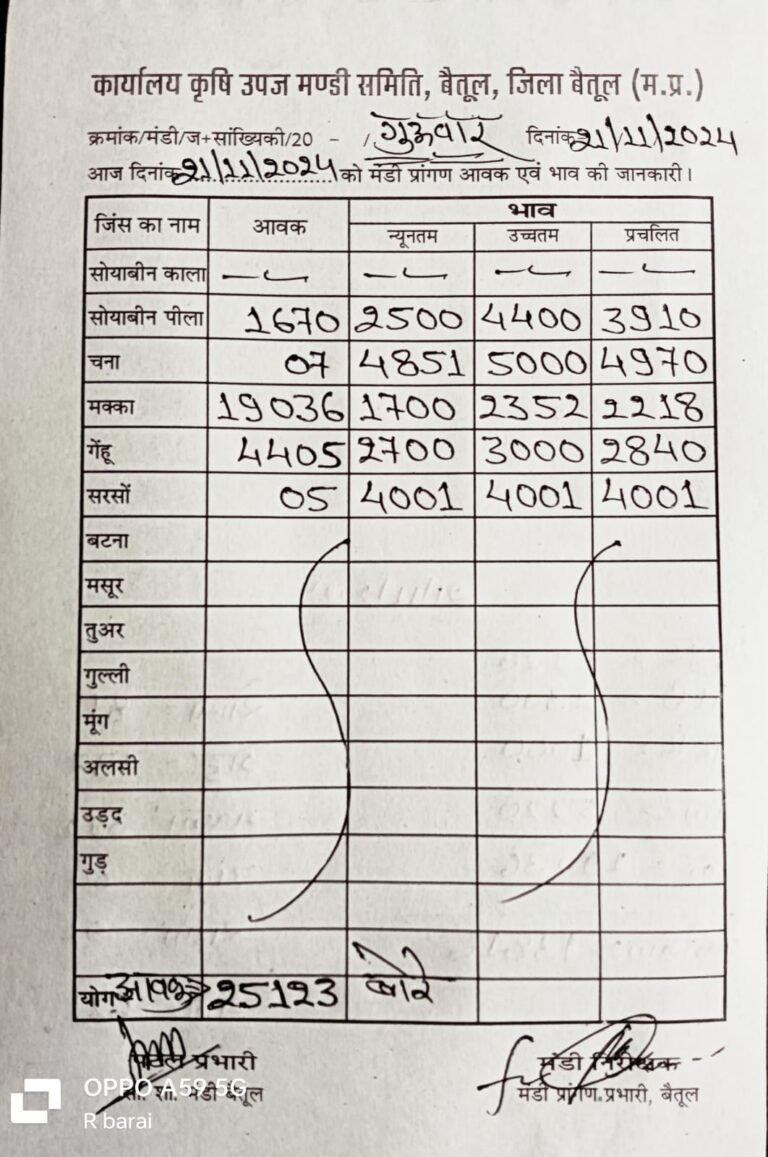 कार्यालय कृषि उपज मण्डी समिति, बैतूल, जिला बैतूल (म.प्र.)
क्रमांक/मंडी/ज+सांख्यिकी/20 - गुरुवार दिनांक 21/11/2024
आज दिनांक 21/11/2024 को मंडी प्रांगण आवक एवं भाव की जानकारी।
जिंस का नाम आवक भाव
न्यूनतम उच्चतम प्रचलित
सोयाबीन काला — — — —
सोयाबीन पीला 1670 2500 4400 3910
चना 07 4851 5000 4970
मक्का 19036 1700 2352 2218
गेंहू 4405 2700 3000 2840
सरसों 05 4001 4001 4001
बटना
मसूर
तुअर
गुल्ली
मूंग
अलसी
उड़द
गुड़
योग आवक 25123 बोरे
प्रभारी मंडी निरीक्षक
मंडी बैतूल मंडी प्रांगण प्रभारी, बैतूल
OPPO A59 5G
R barai